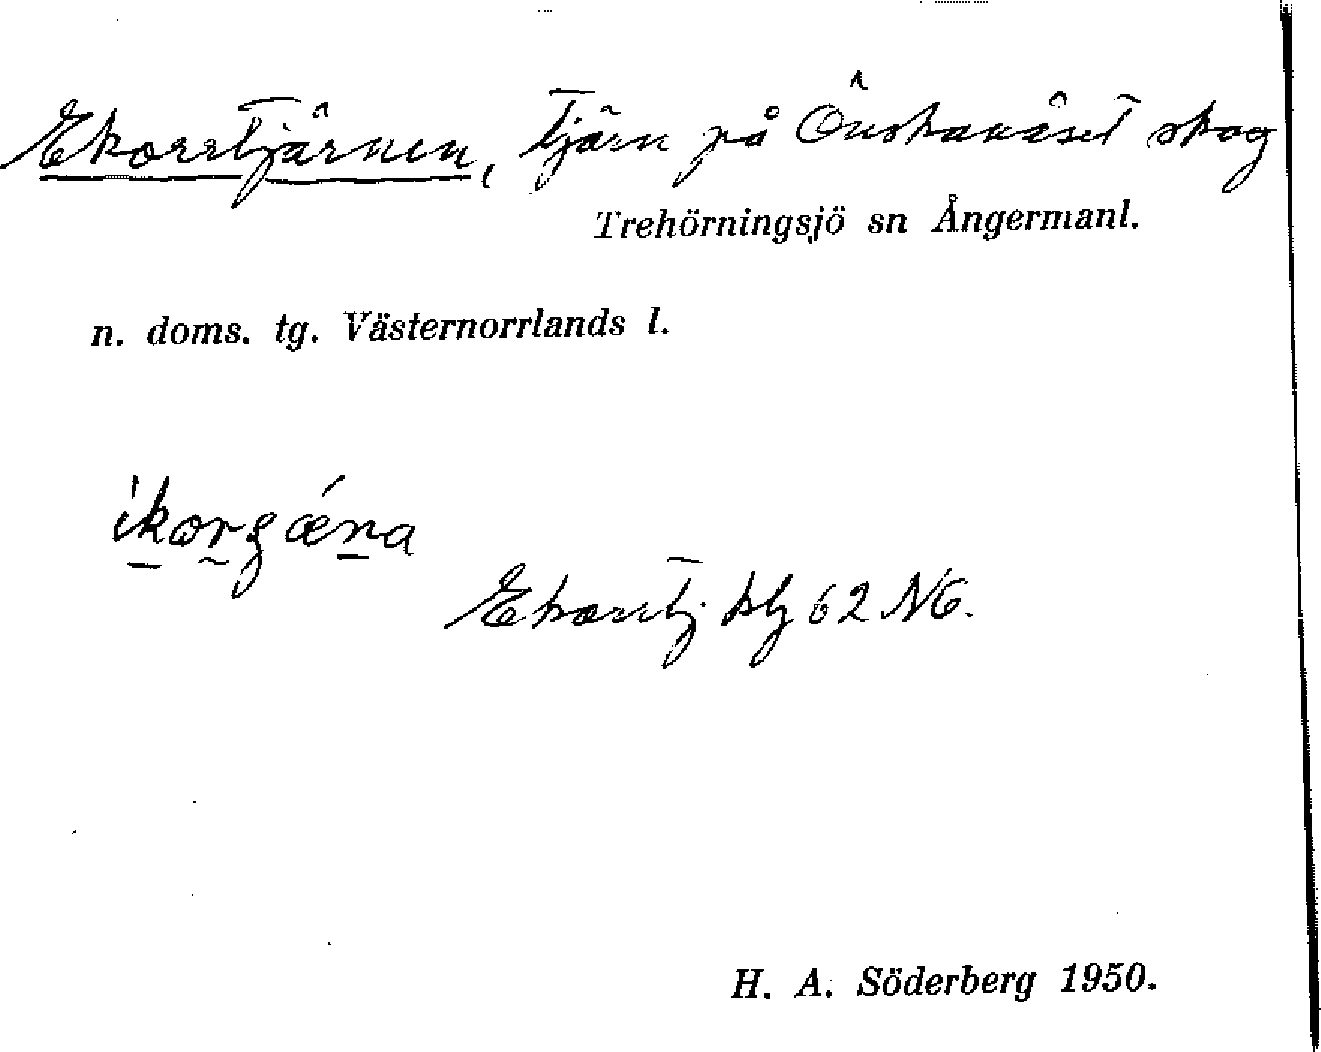 Ekorrtjärnen, Tjärn på Önskanäset skog
Trehörningsjö sn Ångermanl.
n. doms. tg. Västernorrlands l.
Ekorrtj. hlj 62 NG.
H. A. Söderberg 1950.